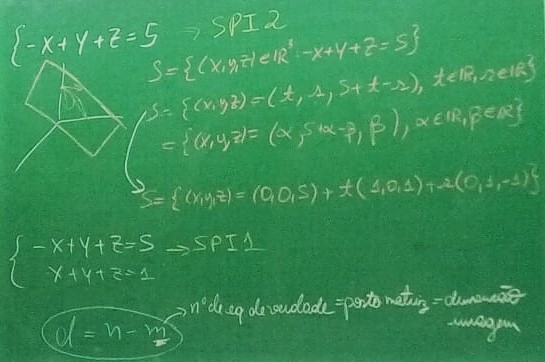 {-x+y+z=5 → SPI2
S={(x,y,z)∈ℝ³: -x+y+z=5}
S={(x,y,z)=(t, s, 5+t-s), t∈ℝ, s∈ℝ}
={(x,y,z)=(α, 5+α-β, β), α∈ℝ, β∈ℝ}
S={(x,y,z)=(0,0,5)+t(1,0,1)+s(0,1,-1)}
{-x+y+z=5 → SPI1
x+y+z=1
d=n-m → nº de eq de verdade = posto matriz = dimensão
imagem